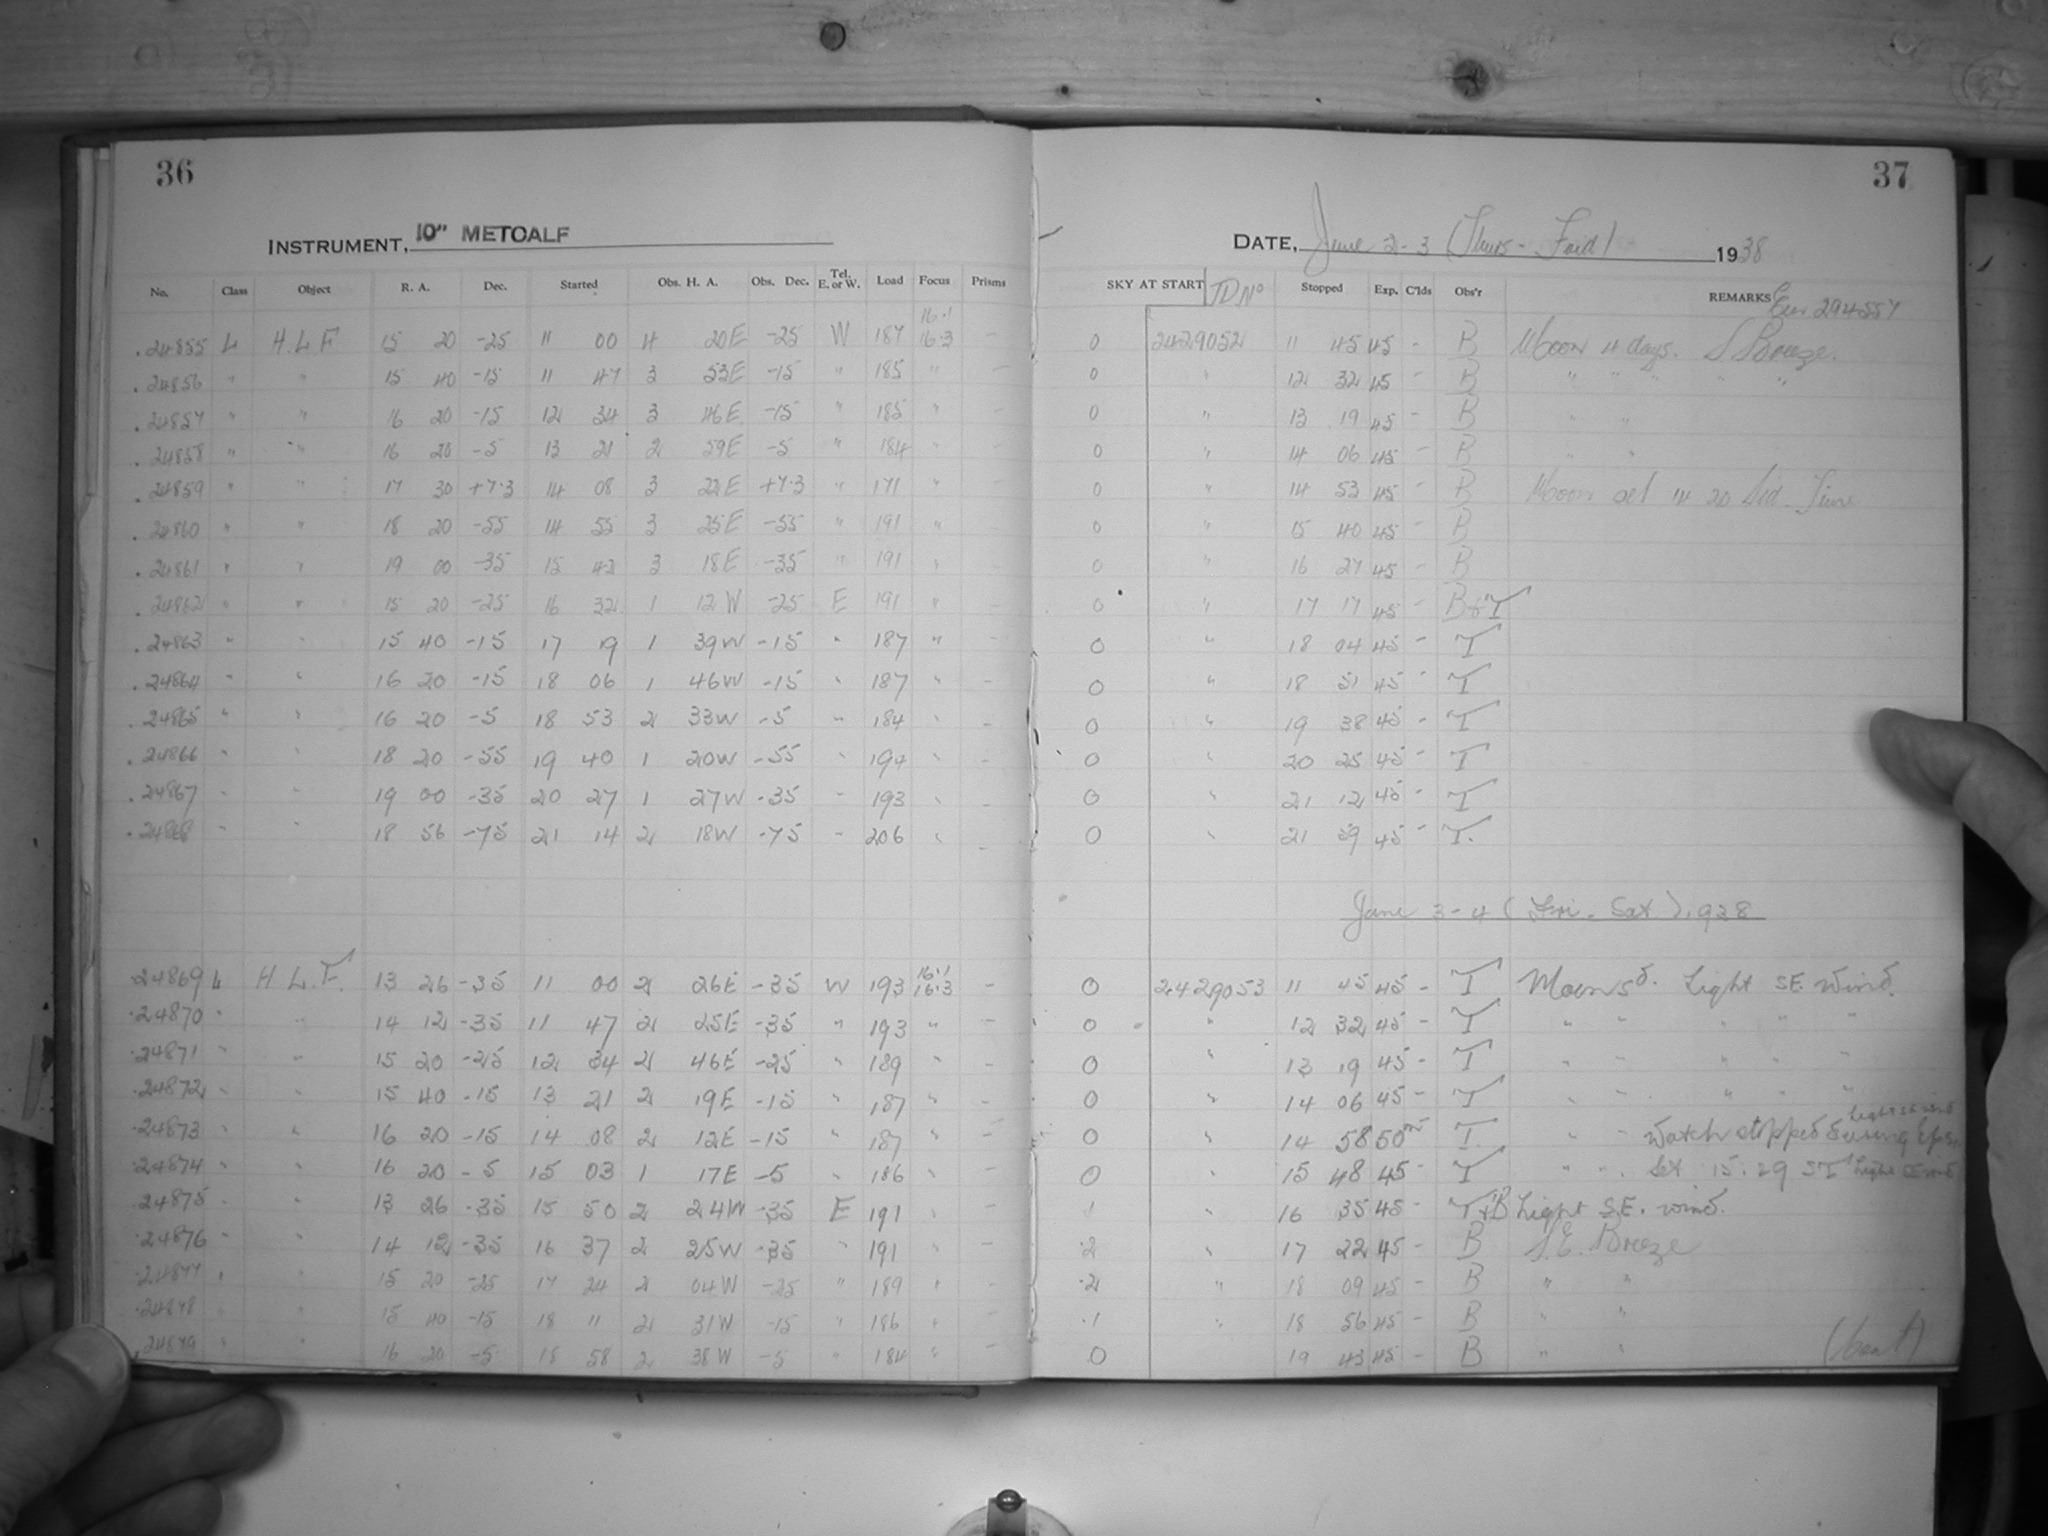 36
37
INSTRUMENT, 10" METCALF
DATE, June 2-3 (Thurs - Frid) 1938
No. Class Object R. A. Dec. Started Obs. H. A. Obs. Dec. Tel. E. or W. Load Focus Prisms SKY AT START JD No Stopped Exp. C'lds Obs'r REMARKS
24855 L H.L.F 15 20 -25 11 00 4 20E -25 W 187 16.1 16.3 - 0 2429052 11 45 45 - B Moon 4 days. S Breeze.
24856 " " 15 40 -15 11 47 3 53E -15 " 185 " - 0 " 12 32 45 - B " " " " "
24857 " " 16 20 -15 12 34 3 46E -15 " 185 " - 0 " 13 19 45 - B " "
24858 " " 16 20 -5 13 21 2 59E -5 " 184 " - 0 " 14 06 45 - B " "
24859 " " 17 30 +7.3 14 08 3 22E +7.3 " 171 " - 0 " 14 53 45 - B Moon set 14 20 Sid. Time
24860 " " 18 20 -55 14 55 3 25E -55 " 191 " - 0 " 15 40 45 - B
24861 " " 19 00 -35 15 42 3 18E -35 " 191 " - 0 " 16 27 45 - B
24862 " " 15 20 -25 16 32 1 12W -25 E 191 " - 0 " 17 17 45 - B & T
24863 " " 15 40 -15 17 19 1 39W -15 " 187 " - 0 " 18 04 45 - T
24864 " " 16 20 -15 18 06 1 46W -15 " 187 " - 0 " 18 51 45 - T
24865 " " 16 20 -5 18 53 2 33W -5 " 184 " - 0 " 19 38 45 - T
24866 " " 18 20 -55 19 40 1 20W -55 " 194 " - 0 " 20 25 45 - T
24867 " " 19 00 -35 20 27 1 27W -35 " 193 " - 0 " 21 12 45 - T
24868 " " 18 56 -75 21 14 2 18W -75 " 206 " - 0 " 21 59 45 - T.
June 3-4 (Fri. Sat.). 1938
24869 L H.L.F. 13 26 -35 11 00 2 26E -35 W 193 16.1 16.3 - 0 2429053 11 45 45 - T Moon 5d. Light SE wind.
24870 " " 14 12 -35 11 47 2 25E -35 " 193 " - 0 " 12 32 45 - T " " " " "
24871 " " 15 20 -25 12 34 2 46E -25 " 189 " - 0 " 13 19 45 - T " " " " "
24872 " " 15 40 -15 13 21 2 19E -15 " 187 " - 0 " 14 06 45 - T " " " " "
24873 " " 16 20 -15 14 08 2 12E -15 " 187 " - 0 " 14 58 50 T. " " Watch stopped during Light SE wind
24874 " " 16 20 -5 15 03 1 17E -5 " 186 " - 0 " 15 48 45 - T " " Set 15.29 ST Light SE wind
24875 " " 13 26 -35 15 50 2 24W -35 E 191 " - 1 " 16 35 45 - T & B Light S.E. wind.
24876 " " 14 12 -35 16 37 2 25W -35 " 191 " - .2 " 17 22 45 - B S.E. Breeze
24877 " " 15 20 -25 17 24 2 04W -25 " 189 " - .2 " 18 09 45 - B " "
24878 " " 15 40 -15 18 11 2 31W -15 " 186 " - .1 " 18 56 45 - B " "
24879 " " 16 20 -5 18 58 2 38W -5 " 184 " - .0 19 43 45 - B " " (cont)